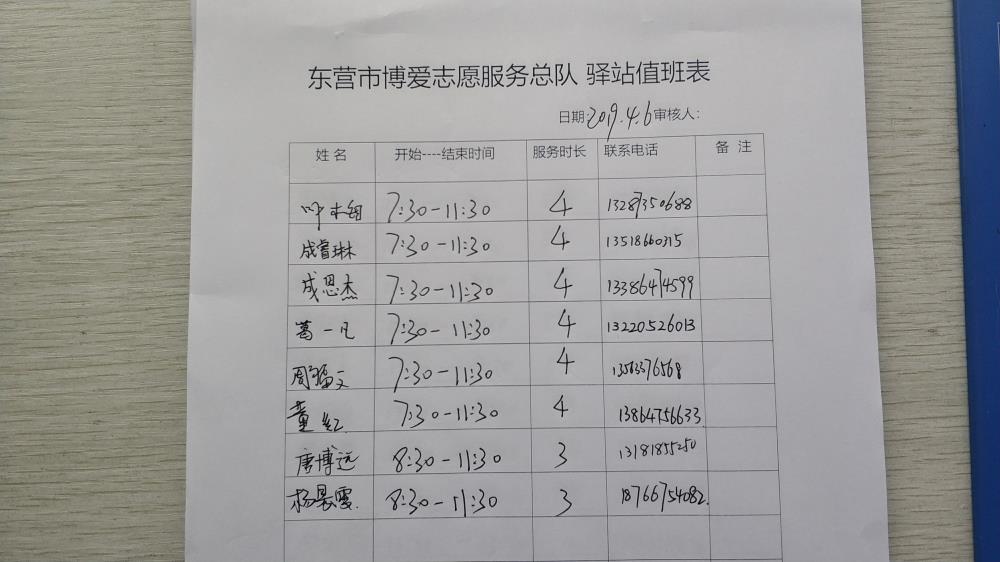 东营市博爱志愿服务总队 驿站值班表
日期:2019.4.6 审核人:
姓名 开始----结束时间 服务时长 联系电话 备 注
叶 7:30-11:30 4 13287350688
成睿琳 7:30-11:30 4 13518660315
成恩杰 7:30-11:30 4 13386474599
葛一凡 7:30-11:30 4 13220526013
周 文 7:30-11:30 4 13563376568
董红 7:30-11:30 4 13864756633
唐博远 8:30-11:30 3 13181855250
杨昊雯 8:30-11:30 3 18766754082.